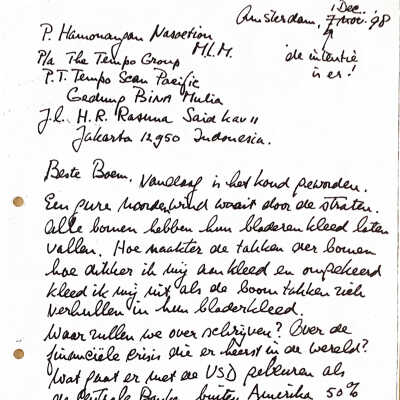 Amsterdam, 7 nov. '98
1 Dec.
de intentie
is er!
P. Hamonangan Nasoetion
M.L.M.
P/a The Tempo Group
P.T. Tempo Scan Pacific
Gedung Bina Mulia
J.L. H.R. Rasuna Said Kav 11
Jakarta 12950 Indonesia.
Beste Boem. Vandaag is het koud geworden.
Een pure noordenwind waait door de straten.
Alle bomen hebben hun bladerenkleed laten
vallen. Hoe naakter de takken der bomen
hoe dikker ik mij aankleed en omgekeerd
kleed ik mij uit als de boomtakken zich
verhullen in hun bladerkleed.
Waar zullen we over schrijven? Over de
financiële crisis die er heerst in de wereld?
Wat gaat er met de USD gebeuren als
de centrale Banken buiten Amerika 50%